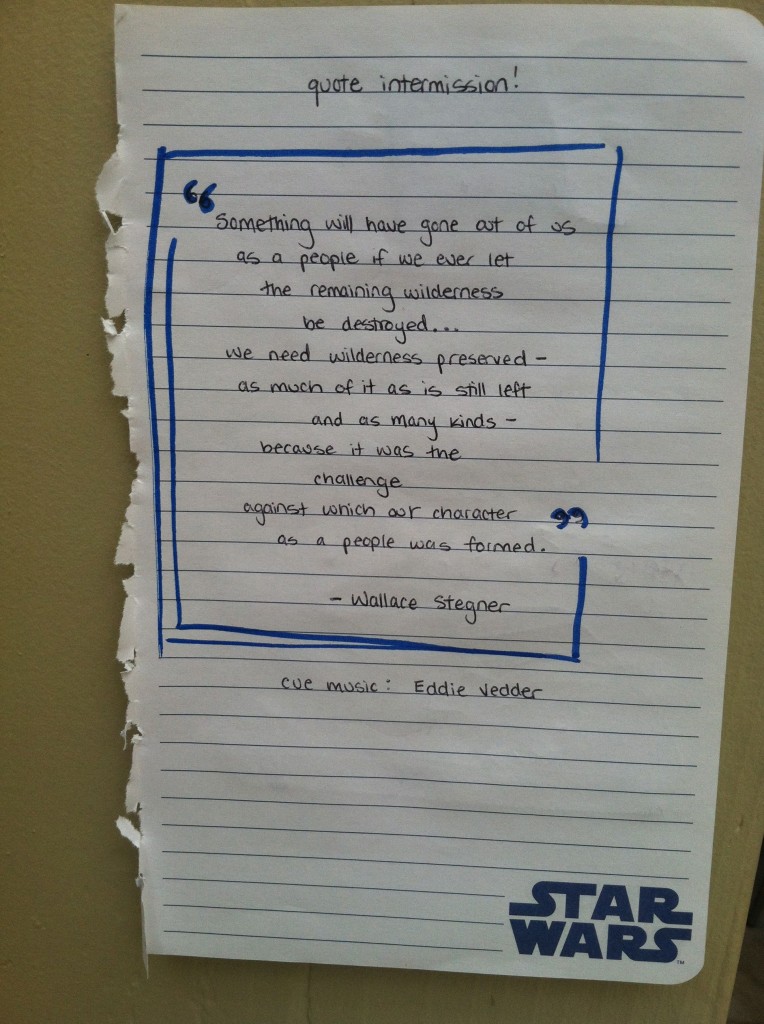 quote intermission!
“
Something will have gone out of us
as a people if we ever let
the remaining wilderness
be destroyed...
we need wilderness preserved -
as much of it as is still left
and as many kinds -
because it was the
challenge
against which our character ”
as a people was formed.
- Wallace Stegner
cue music: Eddie Vedder
STAR
WARS™